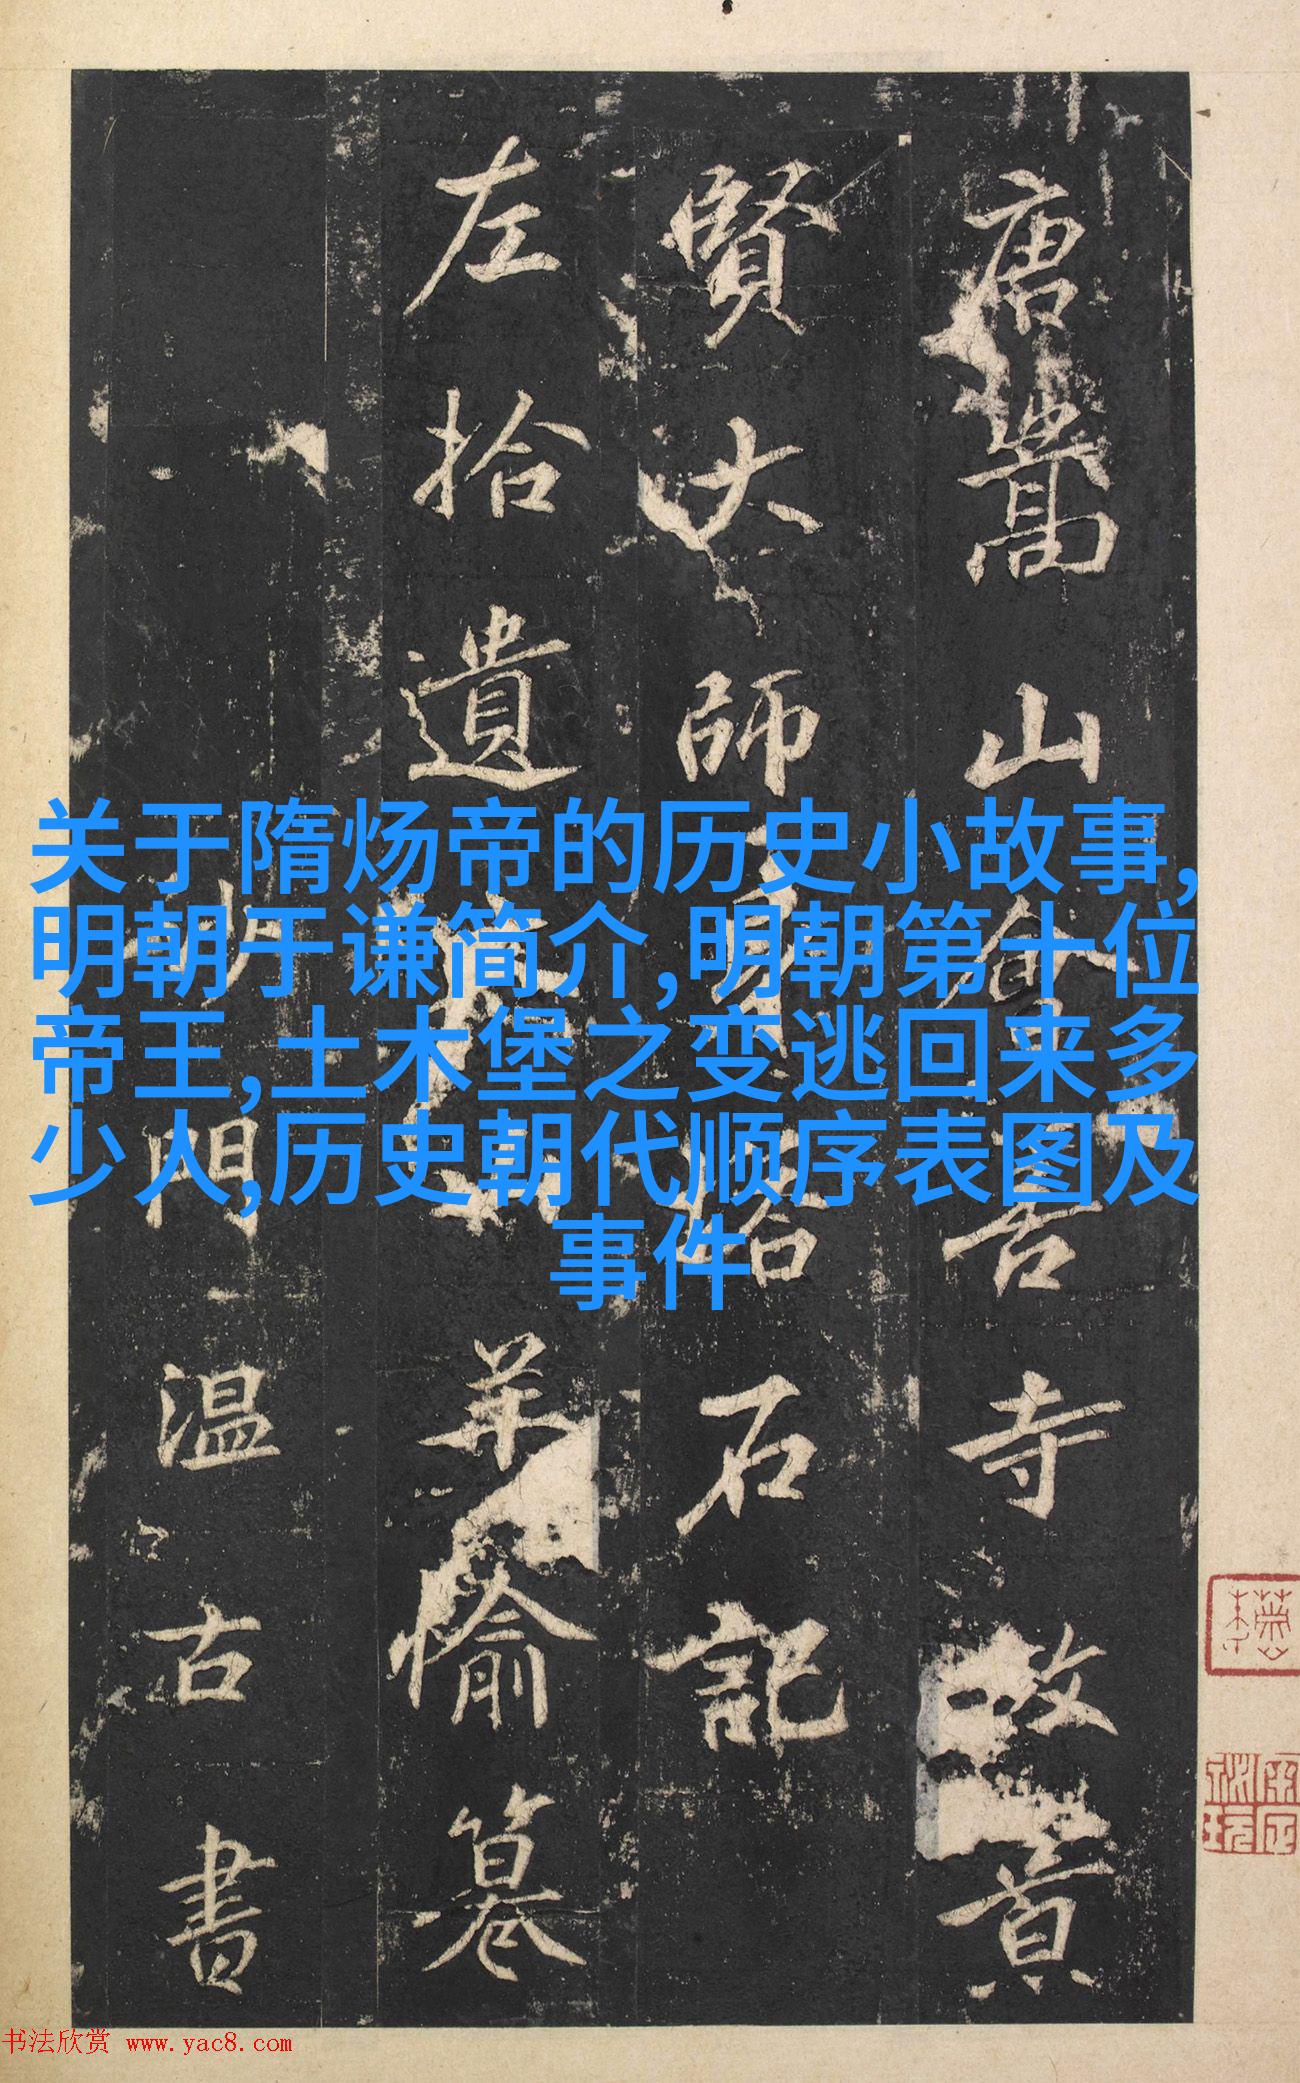 关于隋炀帝的历史小故事,
明朝于谦简介,明朝第十位
帝王,土木堡之变逃回来多
少人,历史朝代顺序表图及
事件
唐嵩山會善寺故景
賢大師身塔石記
左拾遺羊愉
沙門溫古書
书法欣赏 www.yac8.com